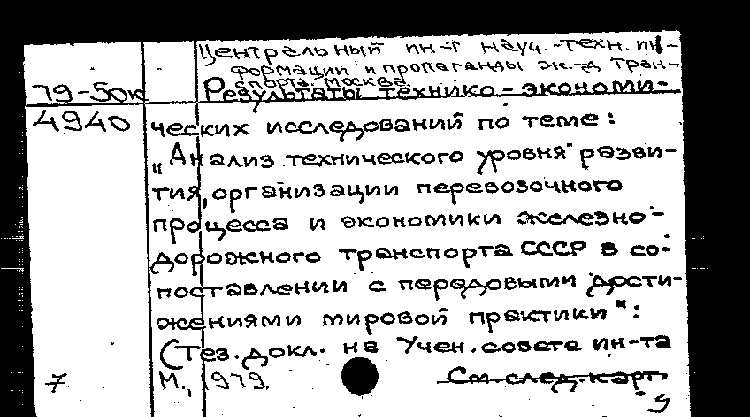 Центральный ин-т науч.-техн. ин-
формации и пропаганды ж.-д. тран-
спорта. Москва
79-50к Результаты технико-экономи-
4940 ческих исследований по теме:
"Анализ технического уровня разви-
тия, организации перевозочного
процесса и экономики железно-
дорожного транспорта СССР в со-
поставлении с передовыми дости-
жениями мировой практики":
(Тез. докл. на Учен. совета ин-та
7 М., 1979. См. след. карт.